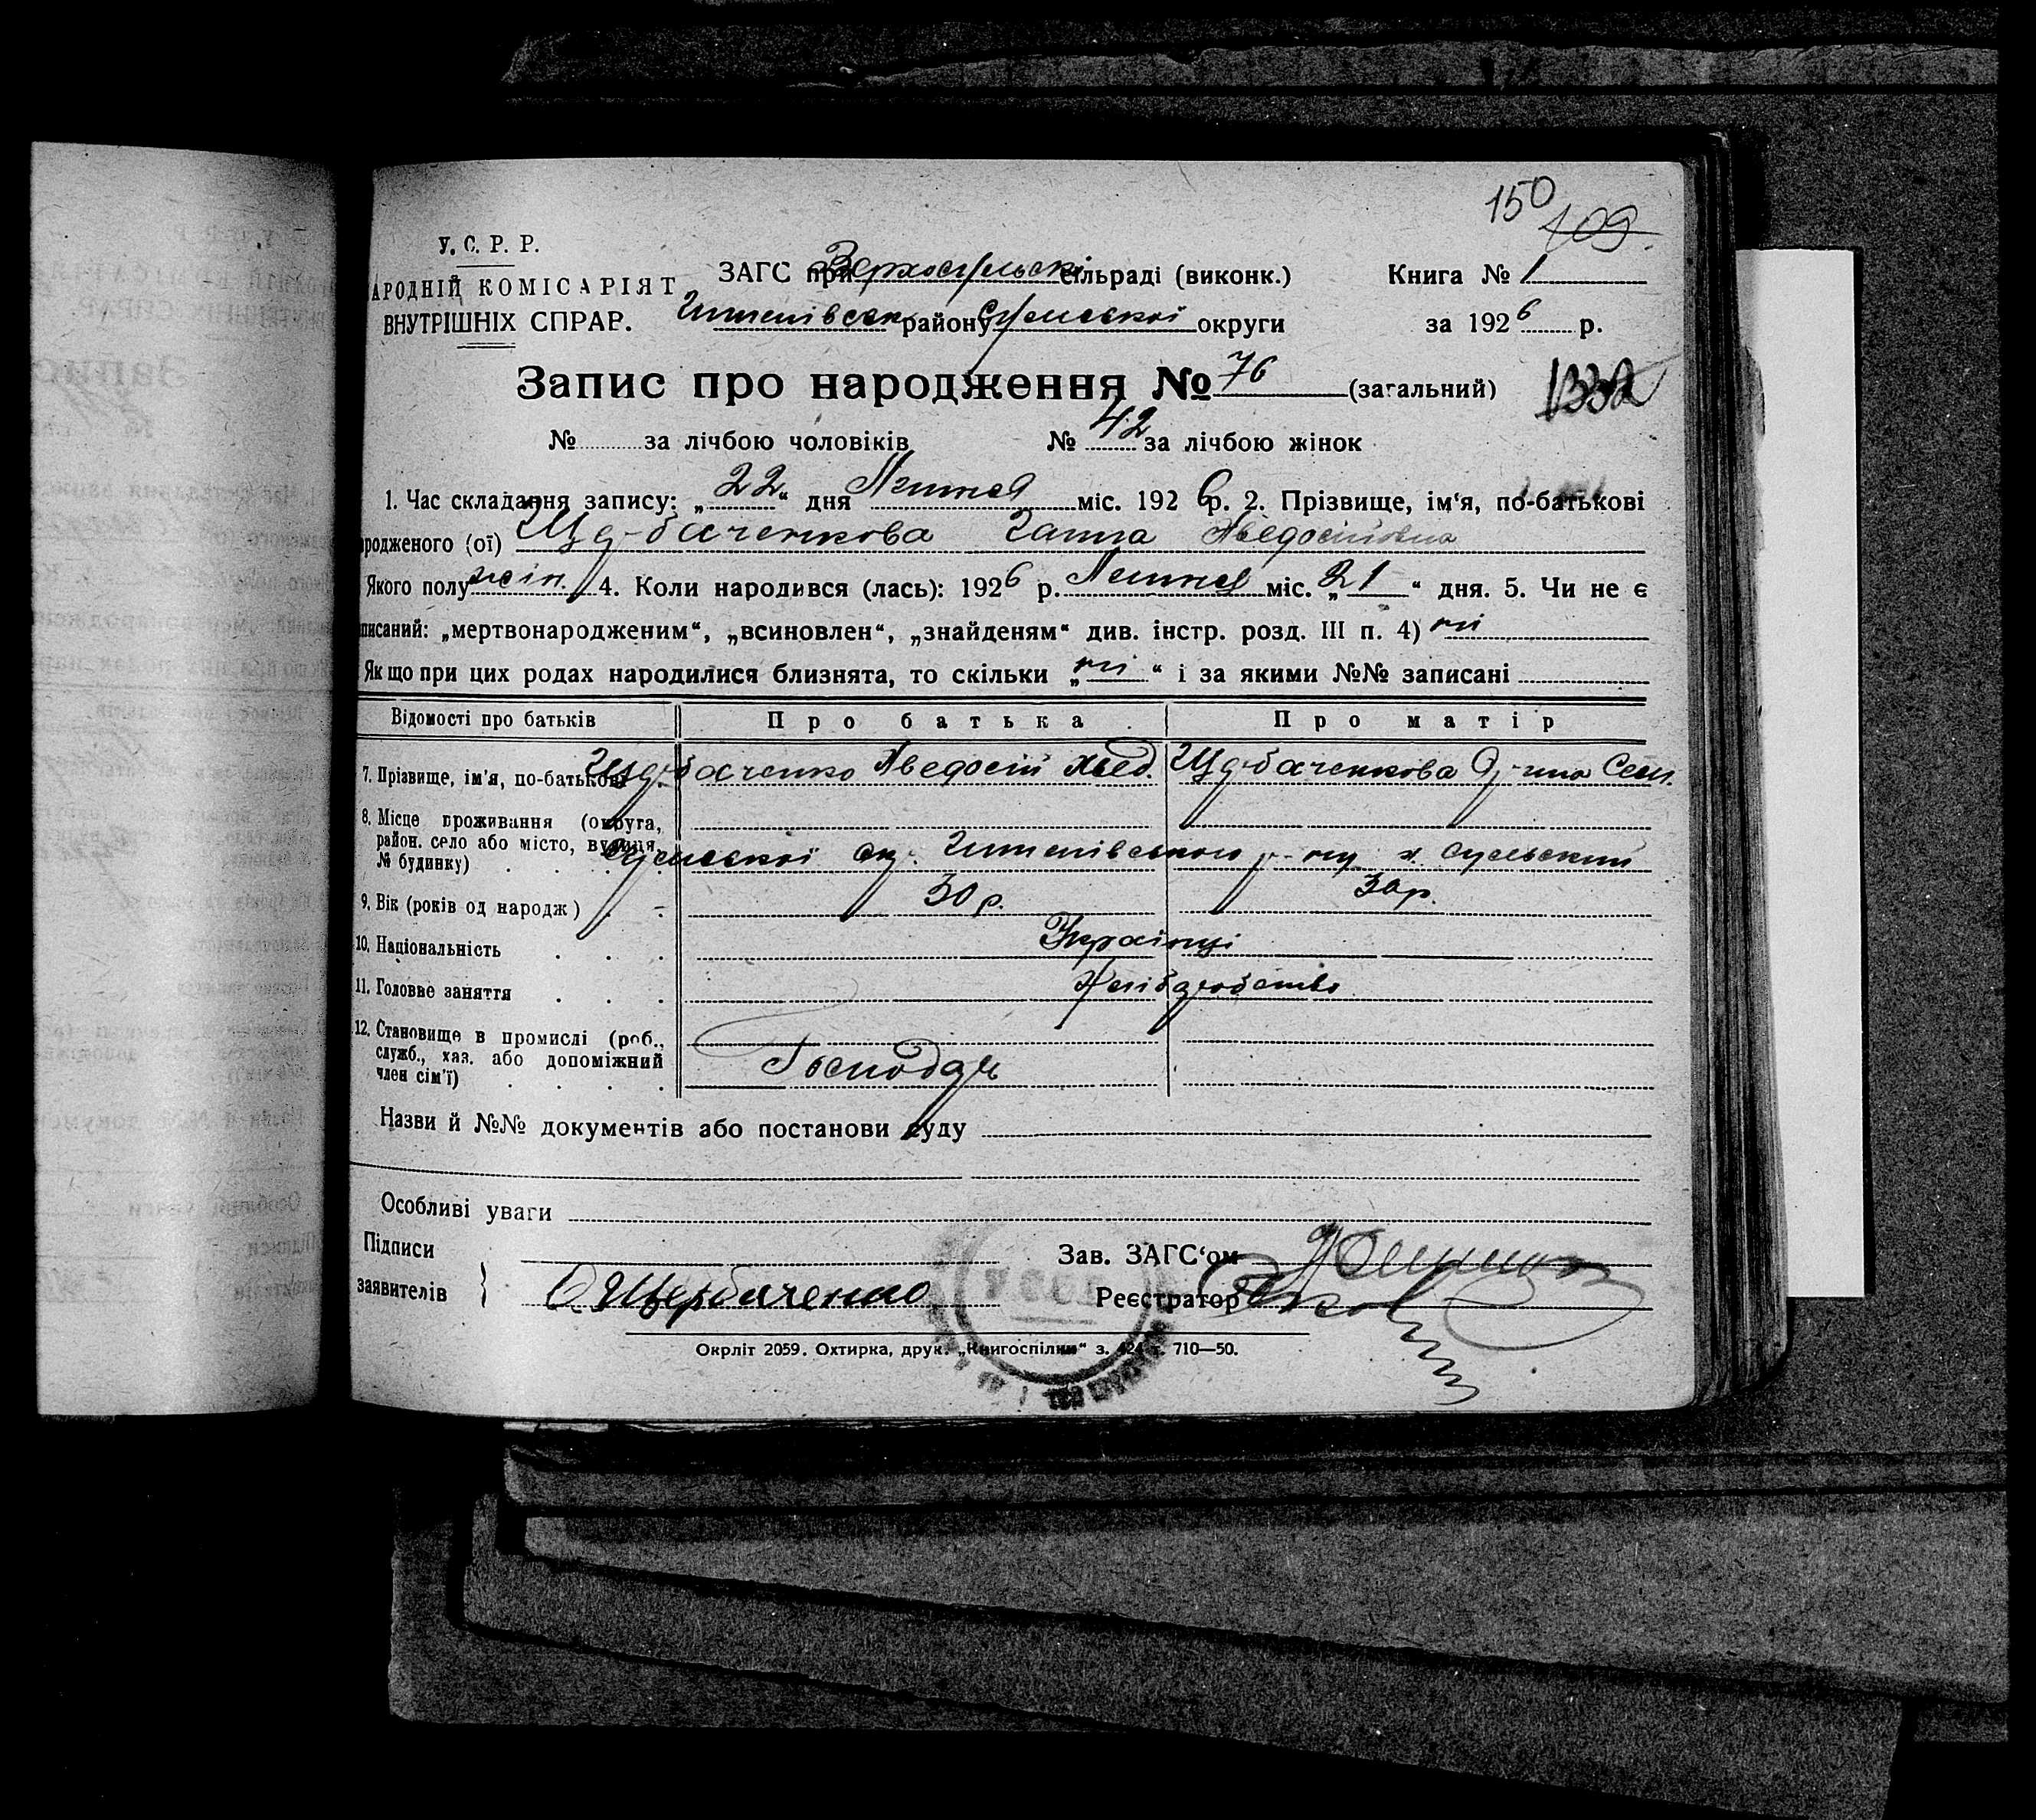 150
109.
У. С. Р. Р.
АРОДНІЙ КОМІСАРІЯТ
ВНУТРІШНІХ СПРАВ.
ЗАГС при Верхосульські сільраді (виконк.)
Книга № 1
району Сумської округи
за 1926 р.
Запис про народження № 76 (загальний)
1332
№ за лічбою чоловіків № 42 за лічбою жінок
1. Час складання запису: „22“ дня Липня міс. 1926 р. 2. Прізвище, ім‘я, по-батькові
родженого (ої) Щербаченкова Ганна Аведосіївна
Якого полу жін. 4. Коли народився (лась): 1926 р. Липня міс. „21“ дня. 5. Чи не є
писаний: „мертвонародженим“, „всиновлен“, „знайденям“ див. інстр. розд. III п. 4) ні
Якщо при цих родах народилися близнята, то скільки „ні“ і за якими №№ записані
Відомості про батьків Про батька Про матір
7. Прізвище, ім‘я, по-батькові Щербаченко Аведосій Щербаченкова Сем.
8. Місце проживання (округа,
район. село або місто, вулиця,
№ будинку) Сумської ок. р-ну х. Сульський
9. Вік (років од народж) 30 р. 30 р.
10. Національність Українці
11. Головне заняття Хліборобство
12. Становище в промислі (роб.,
служб., хаз. або допоміжний
член сім‘ї) Господар
Назви й №№ документів або постанови суду
Особливі уваги
Підписи
заявителів } Щербаченко
Зав. ЗАГС‘ом
Реєстратор
Окрліт 2059. Охтирка, друк. „Книгоспілки“ з. 424 т. 710—50.